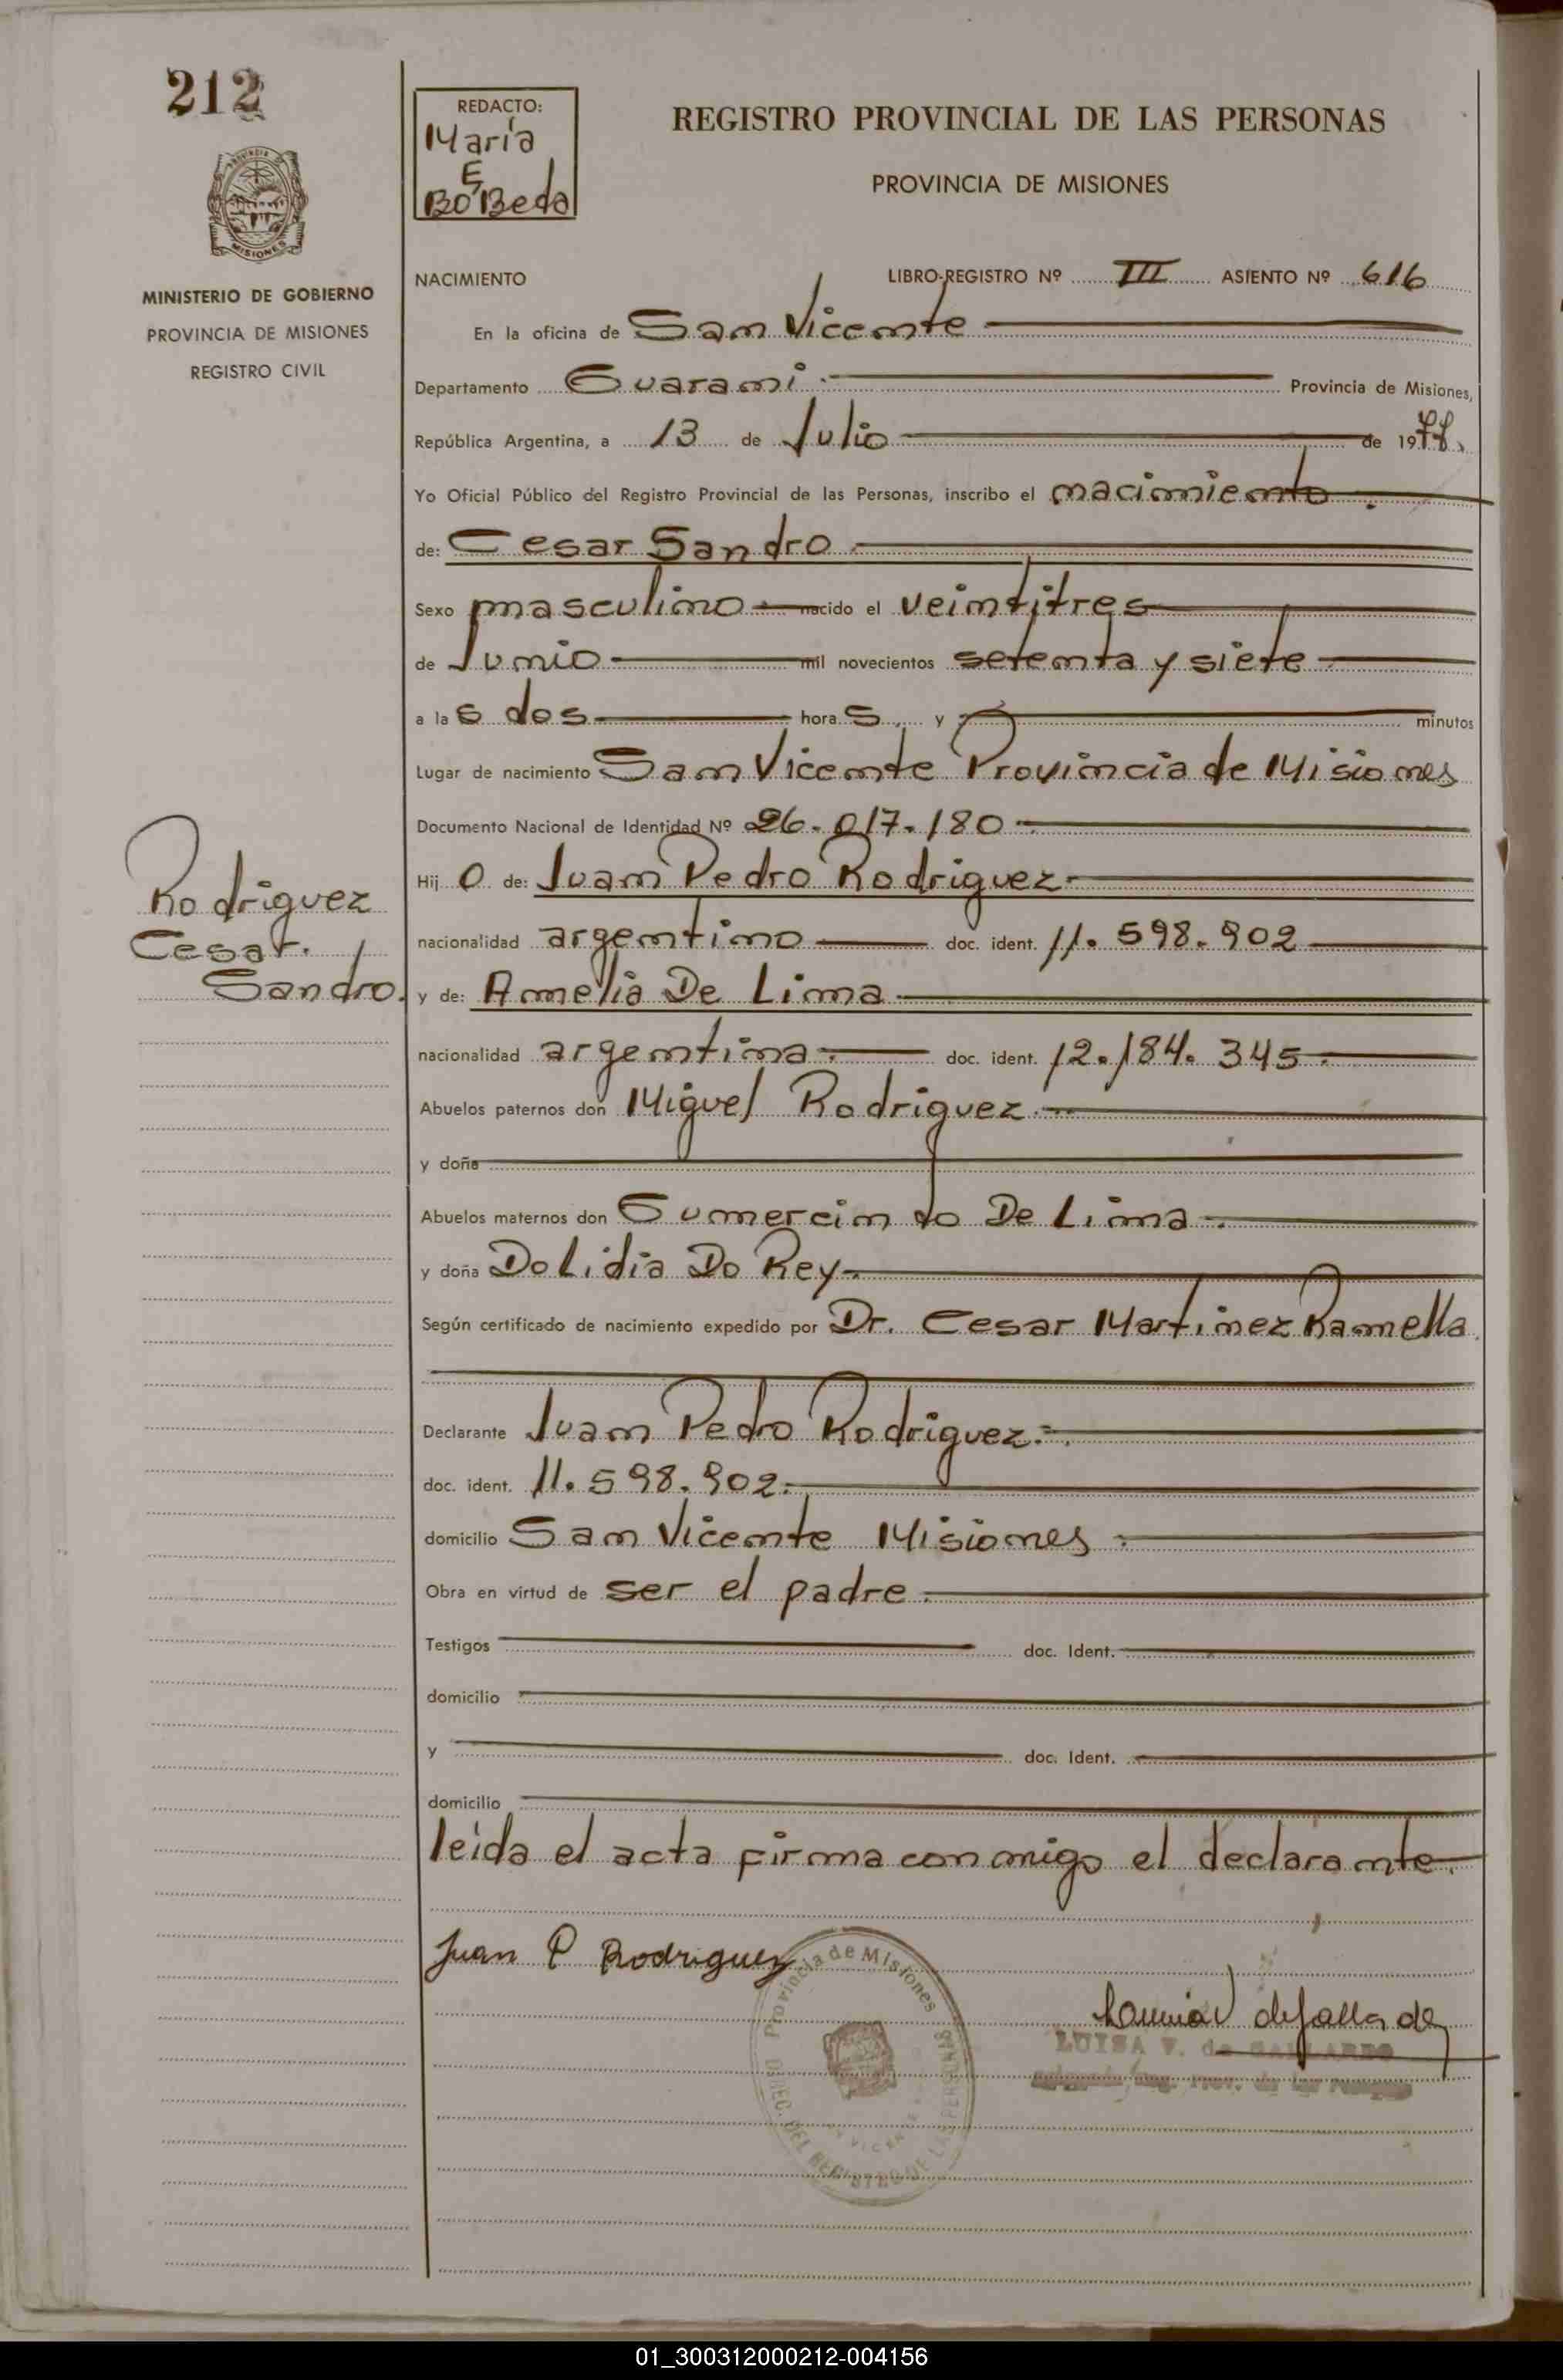 212
REDACTO:
María
E
BoBeda
REGISTRO PROVINCIAL DE LAS PERSONAS
PROVINCIA DE MISIONES
MISIONES
MINISTERIO DE GOBIERNO
PROVINCIA DE MISIONES
REGISTRO CIVIL
NACIMIENTO
LIBRO-REGISTRO Nº III ASIENTO Nº 616
En la oficina de San Vicente
Departamento Guarani Provincia de Misiones,
República Argentina, a 13 de Julio de 1978.
Yo Oficial Público del Registro Provincial de las Personas, inscribo el nacimiento
de: Cesar Sandro
Sexo masculino nacido el veintitres
de Junio mil novecientos setenta y siete
a las dos horas y minutos
Lugar de nacimiento San Vicente Provincia de Misiones
Documento Nacional de Identidad Nº 26.017.180
Hijo de: Juan Pedro Rodriguez
Rodriguez
Cesar.
Sandro.
nacionalidad argentino doc. ident. 11.598.902
y de: Amelia De Lima
nacionalidad argentina doc. ident. 12.184.345
Abuelos paternos don Miguel Rodriguez
y doña
Abuelos maternos don Gumercindo De Lima
y doña Dolidia Do Rey
Según certificado de nacimiento expedido por Dr. Cesar Martinez Ramella
Declarante Juan Pedro Rodriguez
doc. ident. 11.598.902
domicilio San Vicente Misiones
Obra en virtud de ser el padre
Testigos doc. Ident.
domicilio
y doc. Ident.
domicilio
leida el acta firma conmigo el declarante
Juan P Rodriguez
Provincia de Misiones
LUISA V. de GALLARDO
01_300312000212-004156